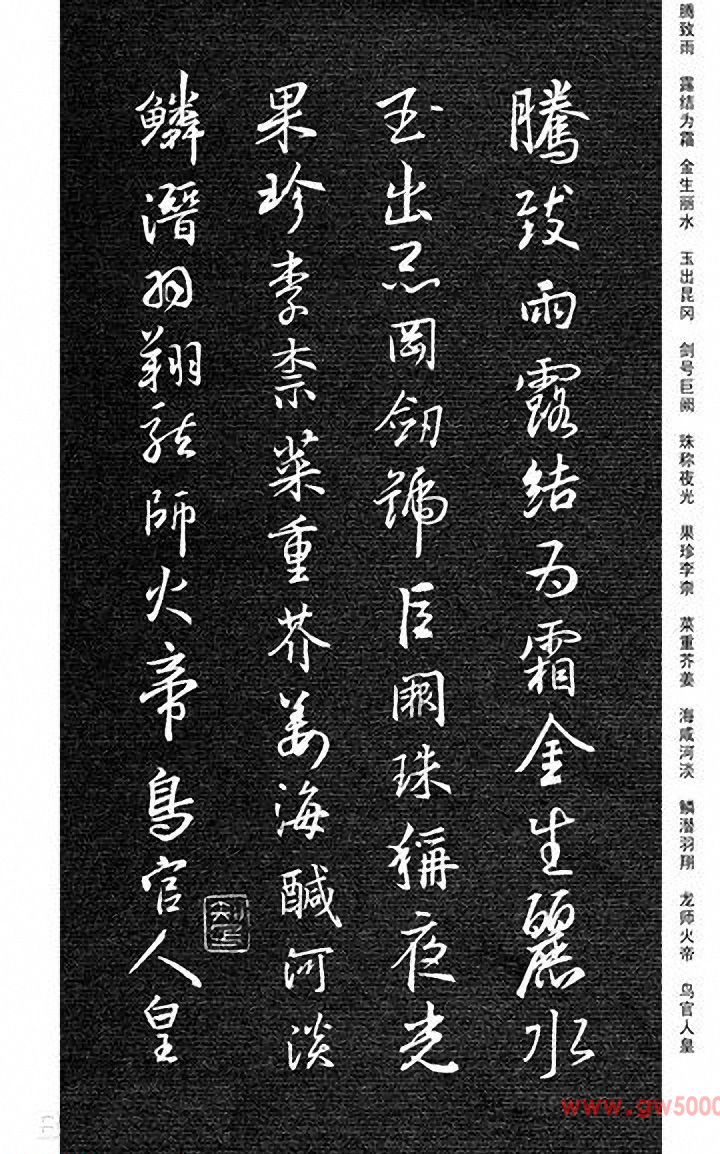 腾致雨 露结为霜 金生丽水 玉出昆冈 剑号巨阙 珠称夜光 果珍李柰 菜重芥姜 海咸河淡 鳞潜羽翔 龙师火帝 鸟官人皇
騰致雨露結為霜金生麗水
玉出崑岡劒號巨闕珠稱夜光
果珍李柰菜重芥薑海醎河淡
鱗潛羽翔龍師火帝鳥官人皇
www.gw5000